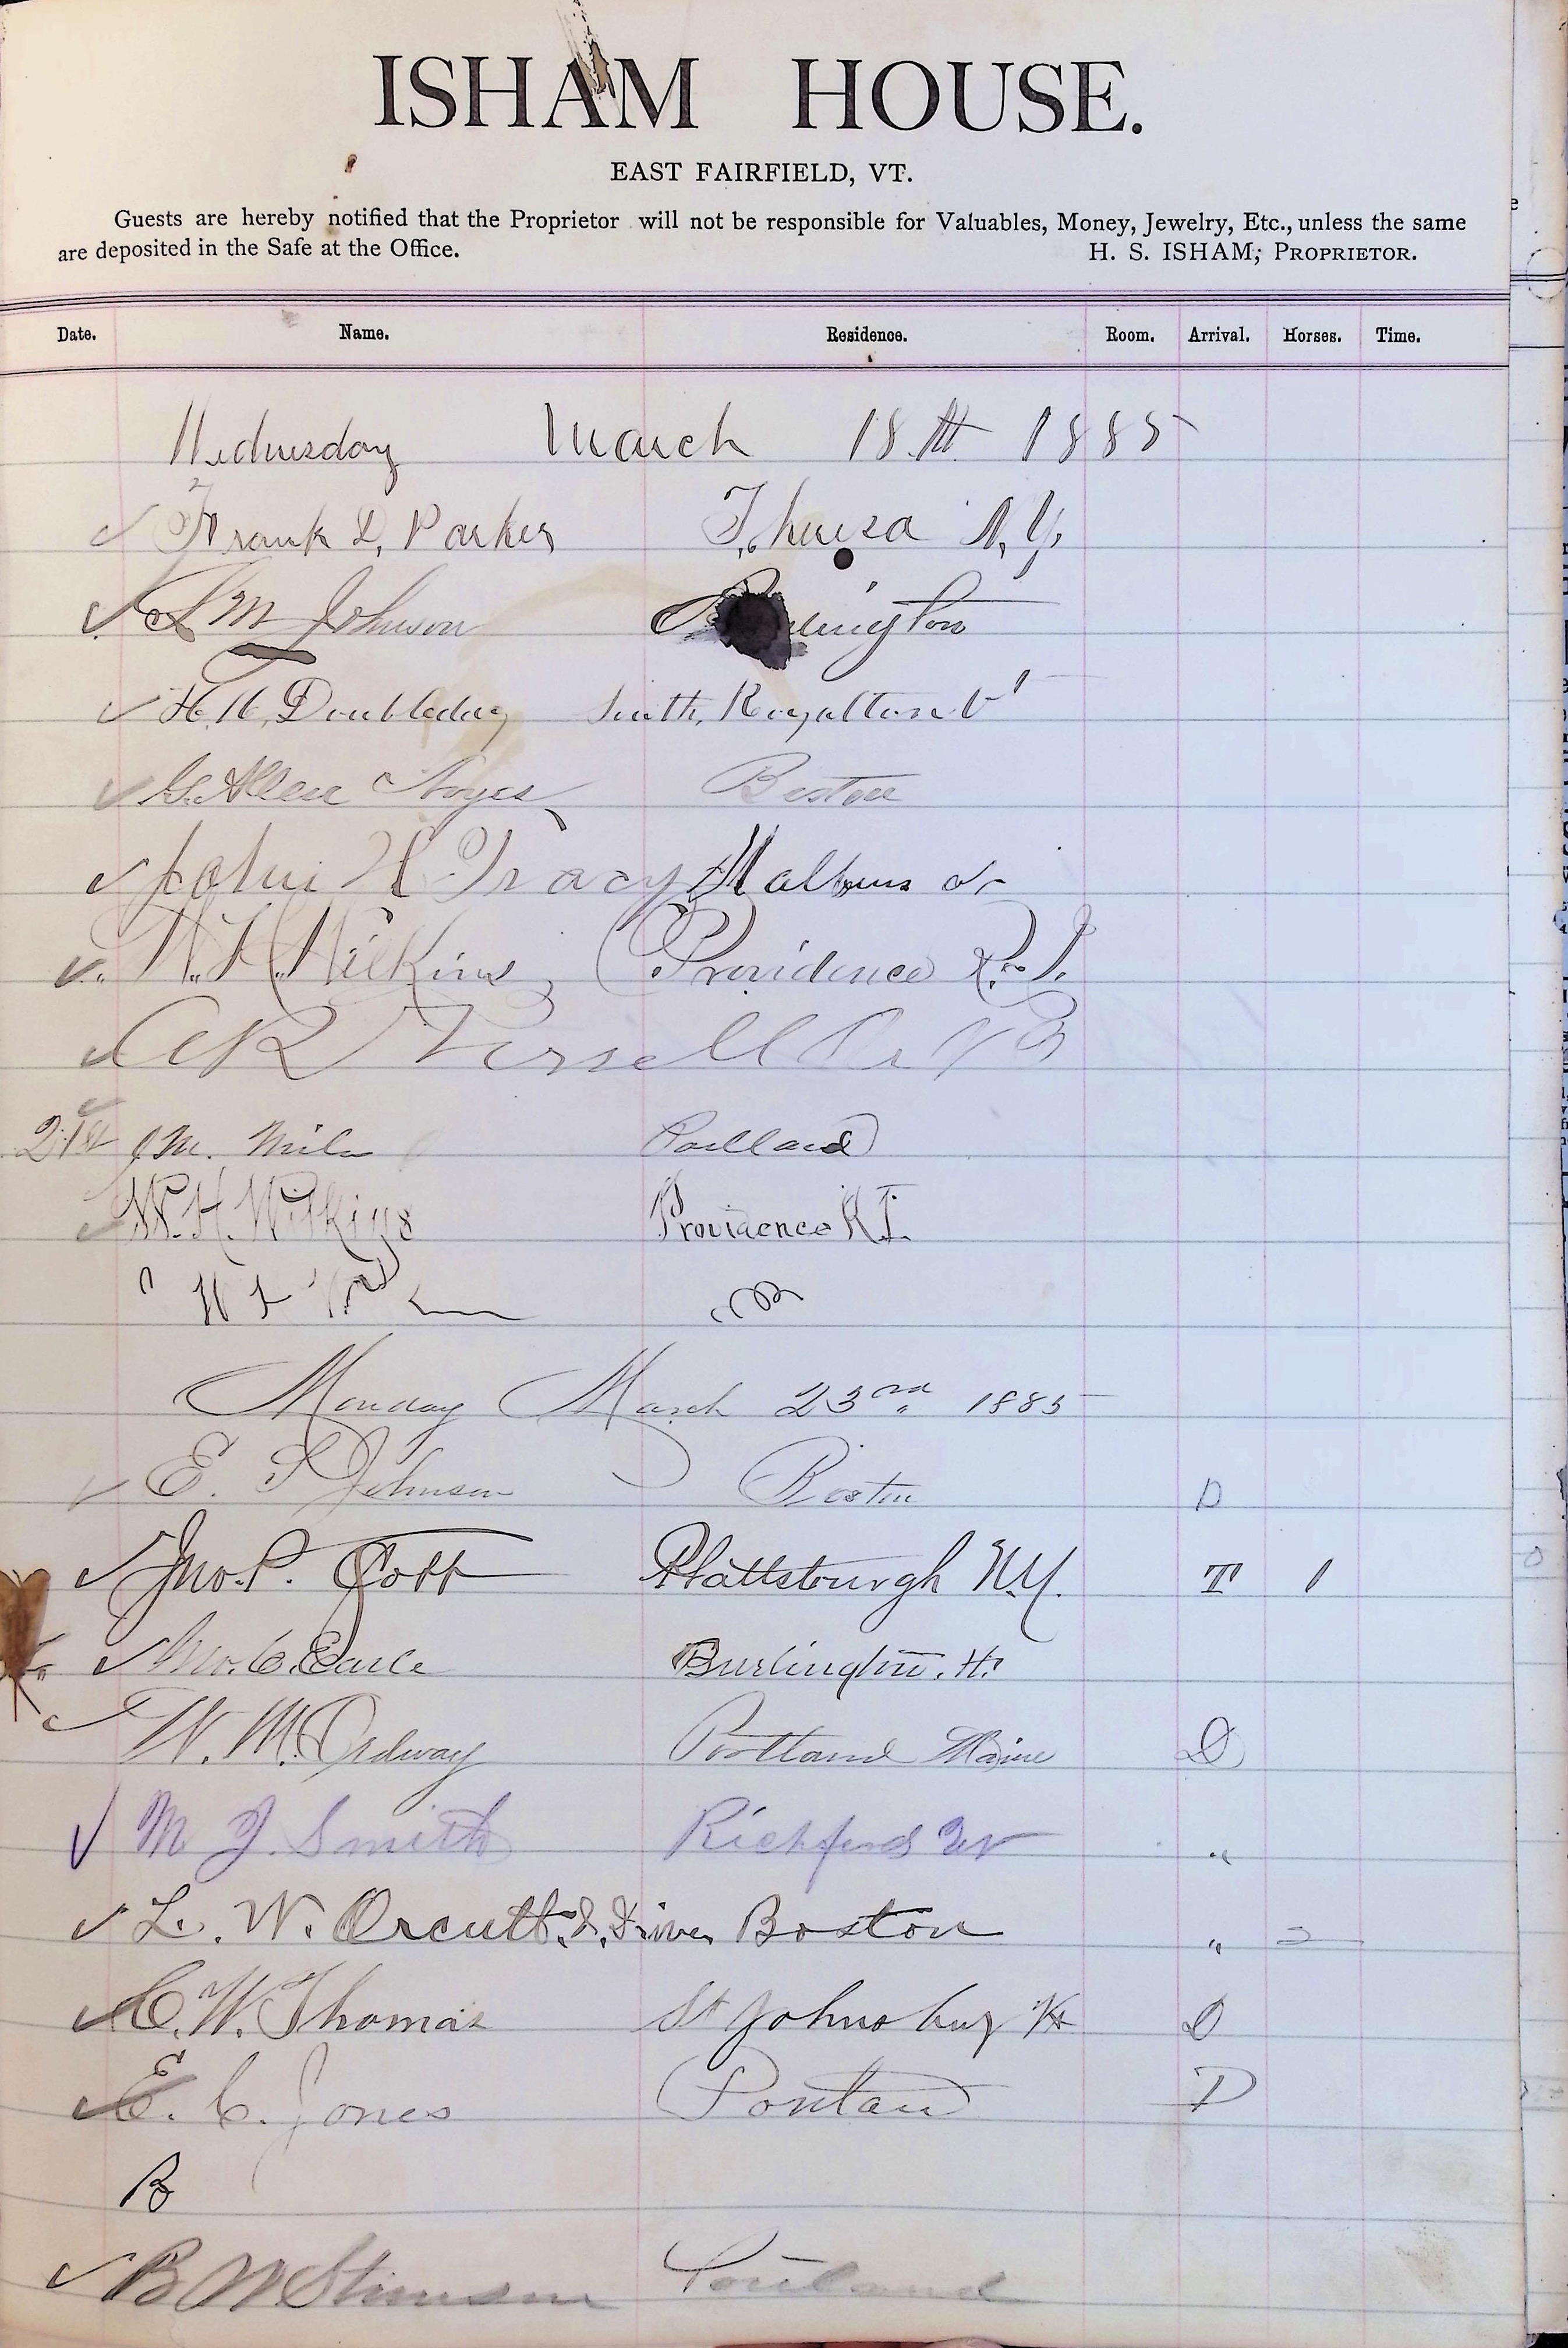 ISHAM HOUSE.
EAST FAIRFIELD, VT.
Guests are hereby notified that the Proprietor will not be responsible for Valuables, Money, Jewelry, Etc., unless the same
are deposited in the Safe at the Office. H. S. ISHAM, PROPRIETOR.
Date. Name. Residence. Room. Arrival. Horses. Time.
Wednesday March 18th 1885
Frank D. Parker N.Y.
S M Johnson Burlington
H. H. Doubleday South Royalton Vt
G. Allen Noyes Boston
John H Tracy St albans
W. H. Wilkins Providence R.I.
21st M. Portland
W. H. Wilkins Providence R.I.
Monday March 23rd 1885
E. S Johnson Boston D
Jno. P. Cobb Plattsburgh N.Y. T 1
Jno. C. Earle Burlington, Vt
W. M. Ordway Portland Maine D
M J Smith Richford Vt "
L. W. Orcutt & Driver Boston " 2
C. W. Thomas St Johnsbury Vt D
E. C. Jones Portland D
B
B W Stimson Portland